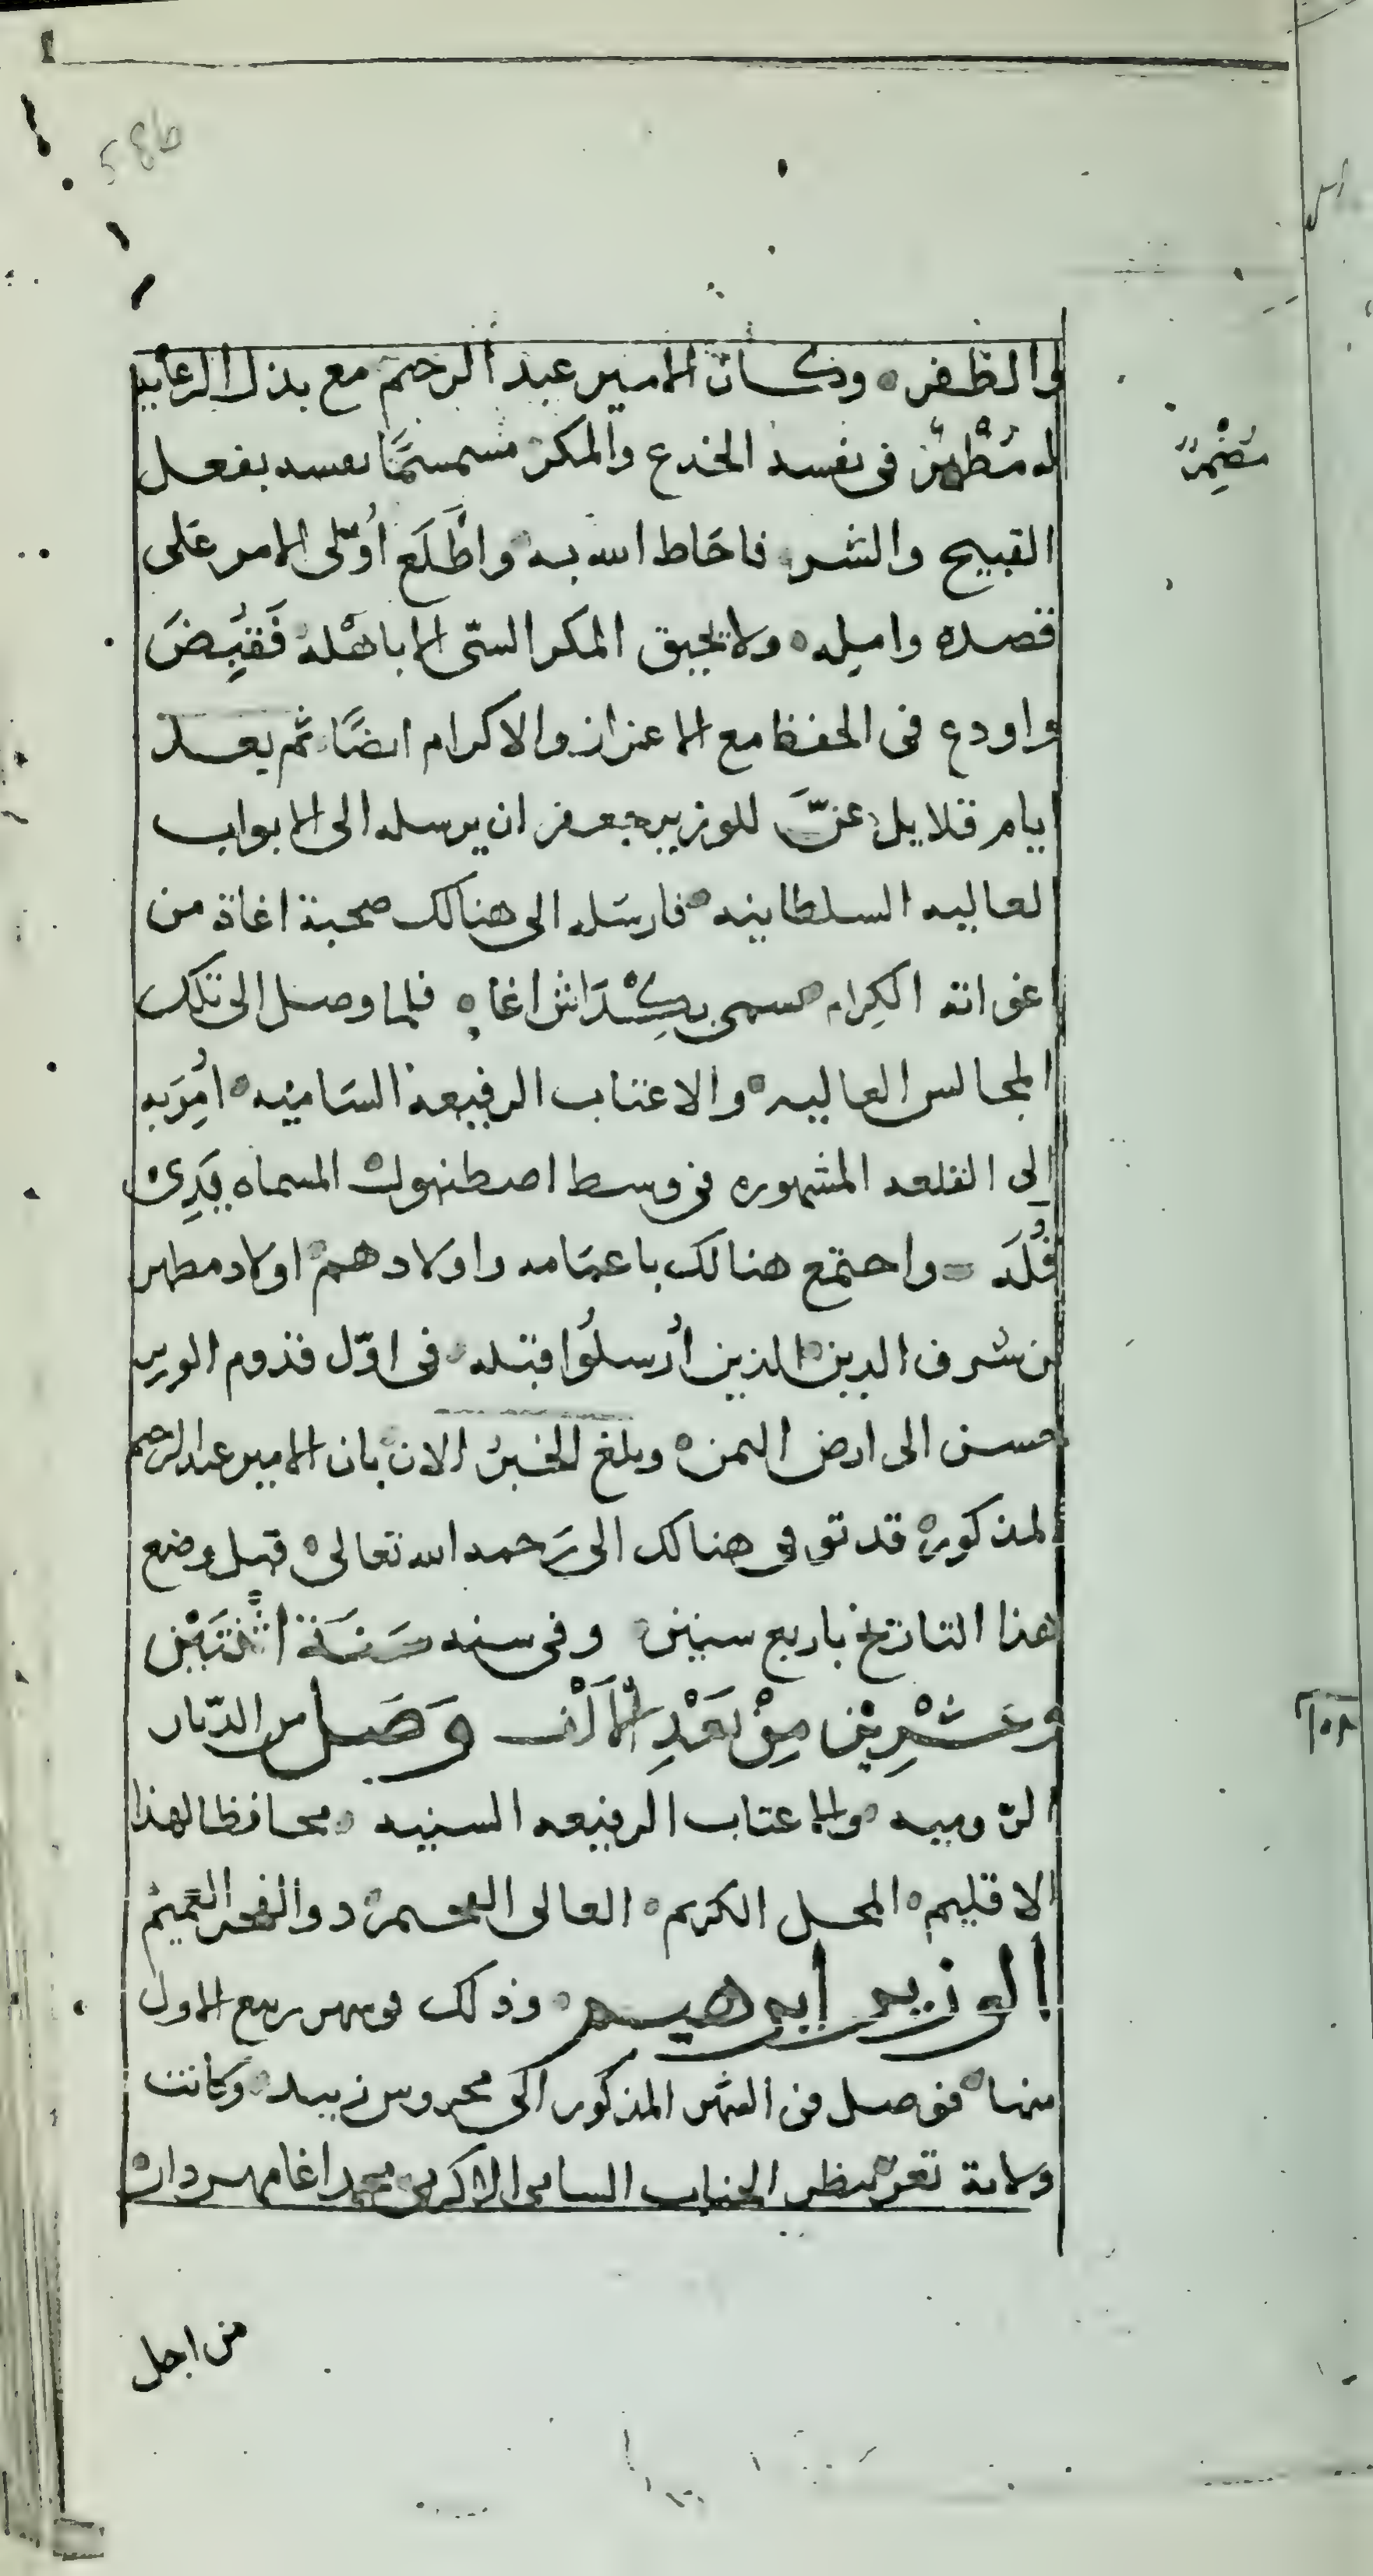 والظفر ه وكان الامير عبد الرحيم مع بذل الرغايب
له مُطْمِئن في نفسه الخدع والمكر نفسه بفعل
مُضْمِرٌ
القبيح والشر فاحَاط الله به واطَّلَعَ اُولى الامر عَلى
قصده واميله ه ولا يحيق المكر السىّ الا باهْله فَقُبِضَ
واودع في الحفظ مع الاعزاز والاكرام ايضًا ثم بعد
ايام قلايل عنَّ للوزير جعفر ان يرسله الى الابواب
العاليه السلطانيه فارسَله الى هنالك صحبة اغاة من
اغواته الكِرام مسمى بكْدَاش اغا ه فلما وصل الى تلك
المجالس العاليه ه والاعتاب الرفيعة السَاميه ه اُمِرَ به
إلى القلعه المشهوره في وسط اصطنبول المسماه يَدِى
قُلَه واجتمع هنالك باعمَامه واولادهم اولاد مطهر
بن شرف الدين الذين اُرسلُوا قبله في اوّل قدوم الوزير
حسن الى ارض اليمن ه وبلغ الخبرُ الان بان الامير عبد الرحيم
المذكور ه قد توفى هنالك الى رَحمه الله تعالى ه قبل وضع
هذا التاريخ باربع سنين وفي سنه سَنَة اثْنَتَيْن
وعَشْرِيْن مِنْ بَعْدِ الْأَلْف وَصَل من الديّار
الرّوميه والاعتاب الرفيعه السنيه محافظا لهذا
الاقليم ه المحل الكريم ه العالى ذو الفخر العَمِيْم
الوزير ابرهيم وذلك في شهر ربيع الاول
منها ه فوصل في الشهر المذكور الى محروس زبيد وكانت
ولاية تعز بنظر الجناب السامى الاكرمى محمد اغا مهردار ه
من اجل
586